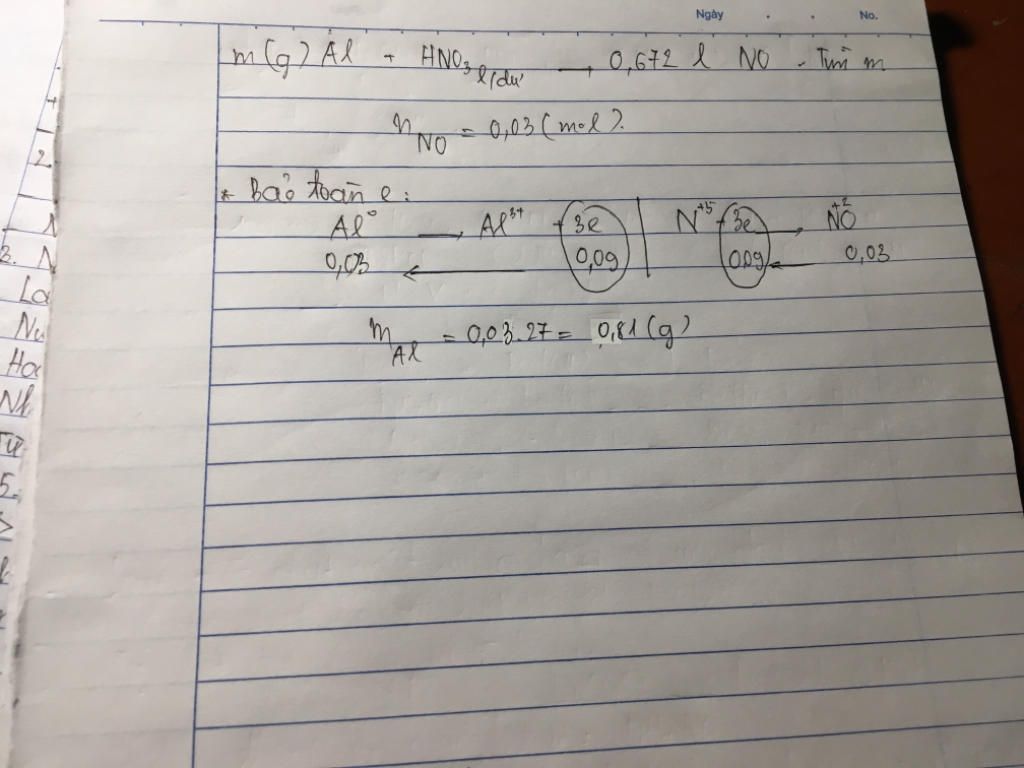 Ngày . . No.
m(g) Al + HNO₃ l/dư → 0,672 l NO . Tìm m
n NO = 0,03 (mol).
* Bảo toàn e:
Al⁰ → Al³⁺ + 3e | N⁺⁵ + 3e → N⁺²O
0,03 ← 0,09 | 0,09 ← 0,03
m Al = 0,03.27 = 0,81 (g)
2.
3. N
La
Nu
Hoc
Nh
Từ
5.